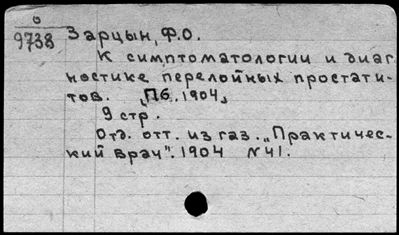 0
9738
Зарцын, Ф.О.
К симптоматологии и диаг
ностике перелойных простати-
тов. Пб. 1904,
9 стр.
Отд. отт. из газ. „Практичес-
кий врач". 1904 N41.